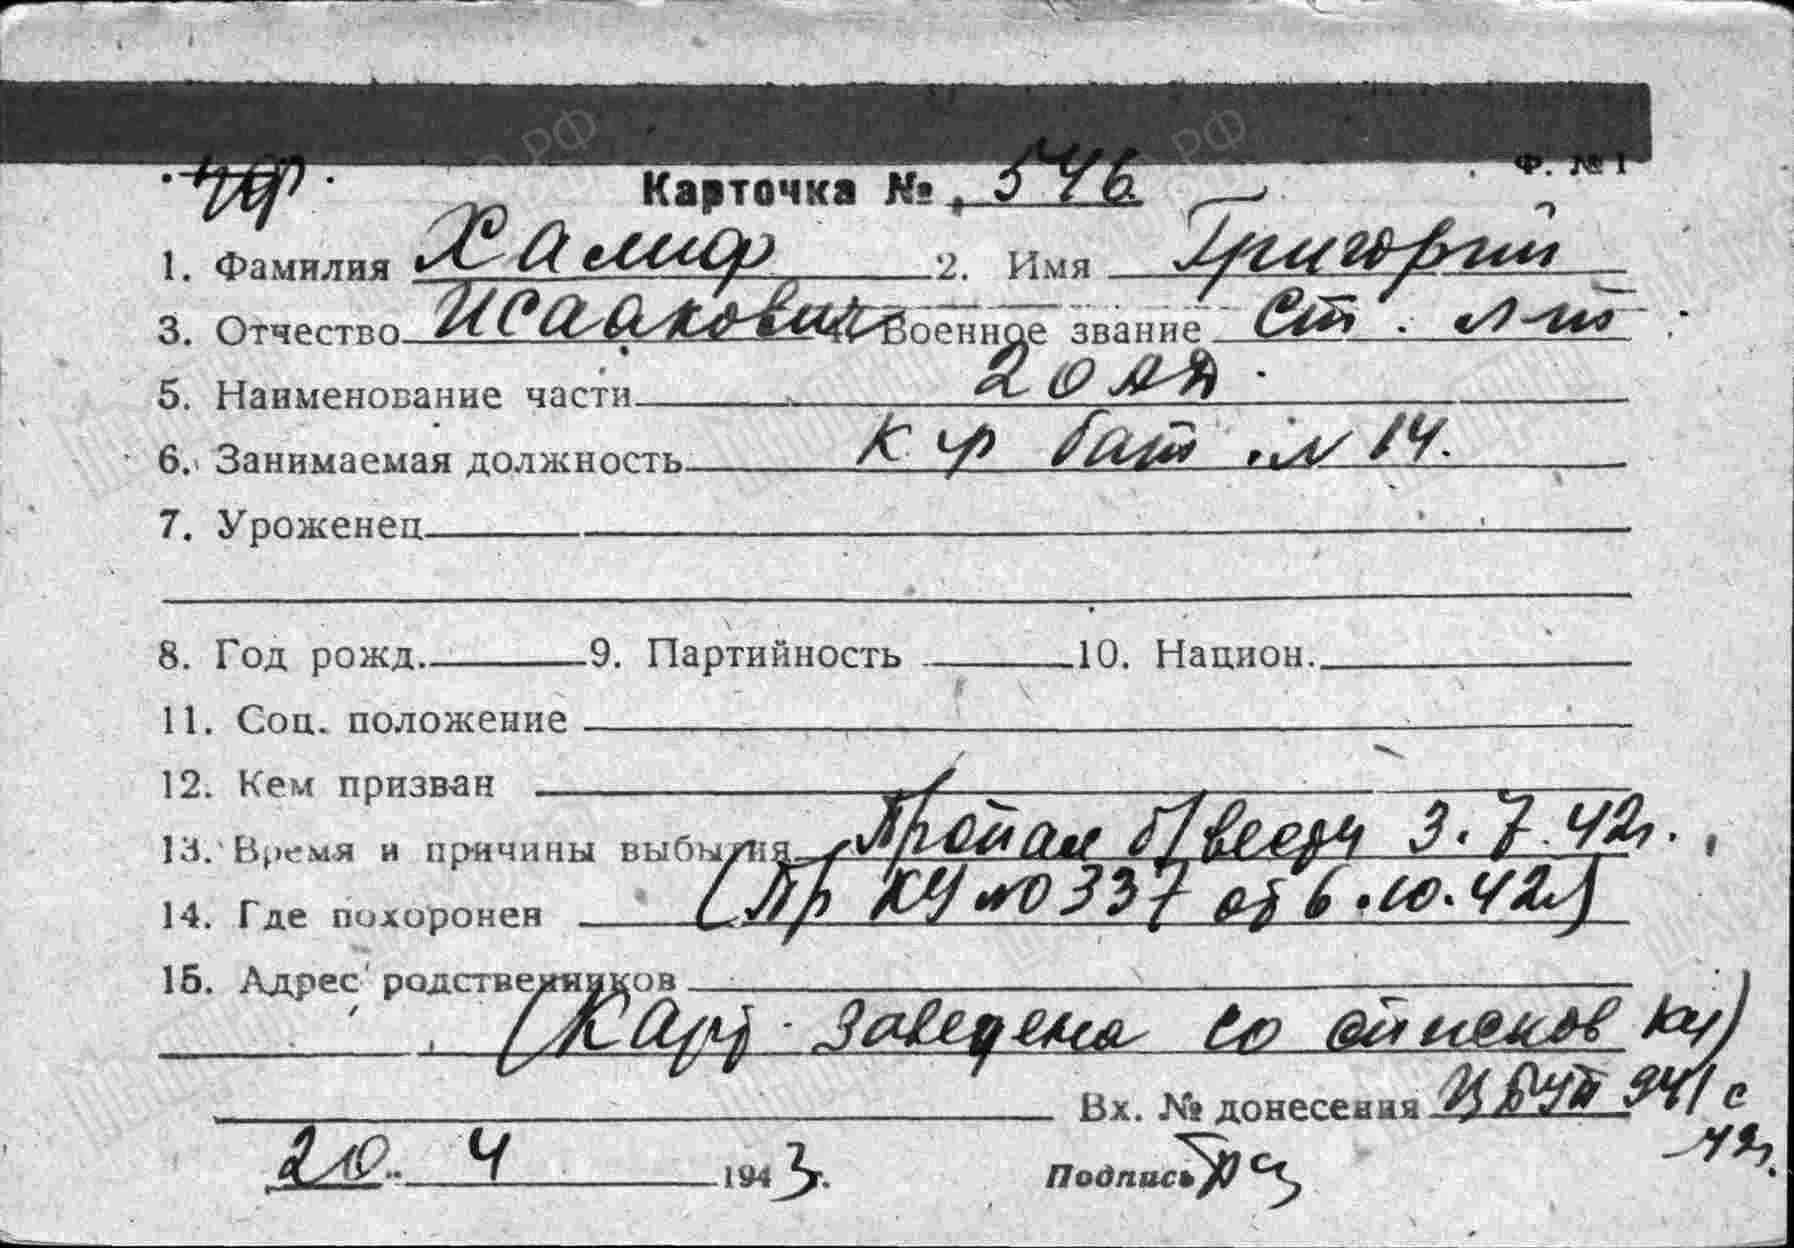 Ф. № 1
ЧФ
Карточка № 546
1. Фамилия Халиф 2. Имя Григорий
3. Отчество Исаакович 4. Военное звание Ст. л-т
5. Наименование части 20 АД.
6. Занимаемая должность к-р бат. № 14.
7. Уроженец
8. Год рожд. 9. Партийность 10. Национ.
11. Соц. положение
12. Кем призван
13. Время и причины выбытия Пропал б/вести 3.7.42г.
14. Где похоронен (Пр КЧ № 0337 от 6.10.42г)
15. Адрес родственников
(Карт. заведена со списков КЧ)
Вх. № донесения ЦБУП 941с
42г.
20 " 4 1943г. Подпись